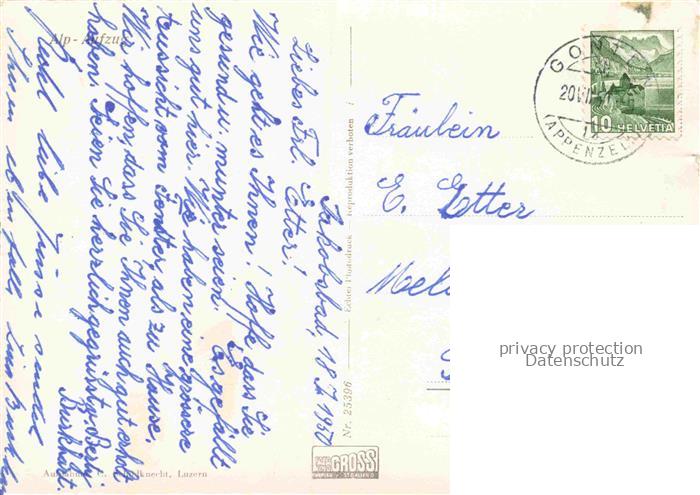 Alp-Aufzug
Jakobsbad, 18. 7. 1937
Liebes Frl. Etter!
Wie geht es Ihnen! Hoffe, dass Sie
gesund u. munter seien. Es gefällt
uns gut hier. Wir haben eine grössere
Aussicht vom Fenster, als zu Hause.
Wir hoffen, dass Sie Ihnen auch gut erholt
haben. Seien Sie herzlich gegrüsst v.
Burkhart
liebe Grüsse sendet
Ihnen
Echte Photodruck - Reproduktion verboten
Nr. 25396
GROSS
ST. GALLEN
Luzern
Fräulein
E. Etter
Mel
GONTEN
20.VII
(APPENZELL)
10 HELVETIA
privacy protection
Datenschutz